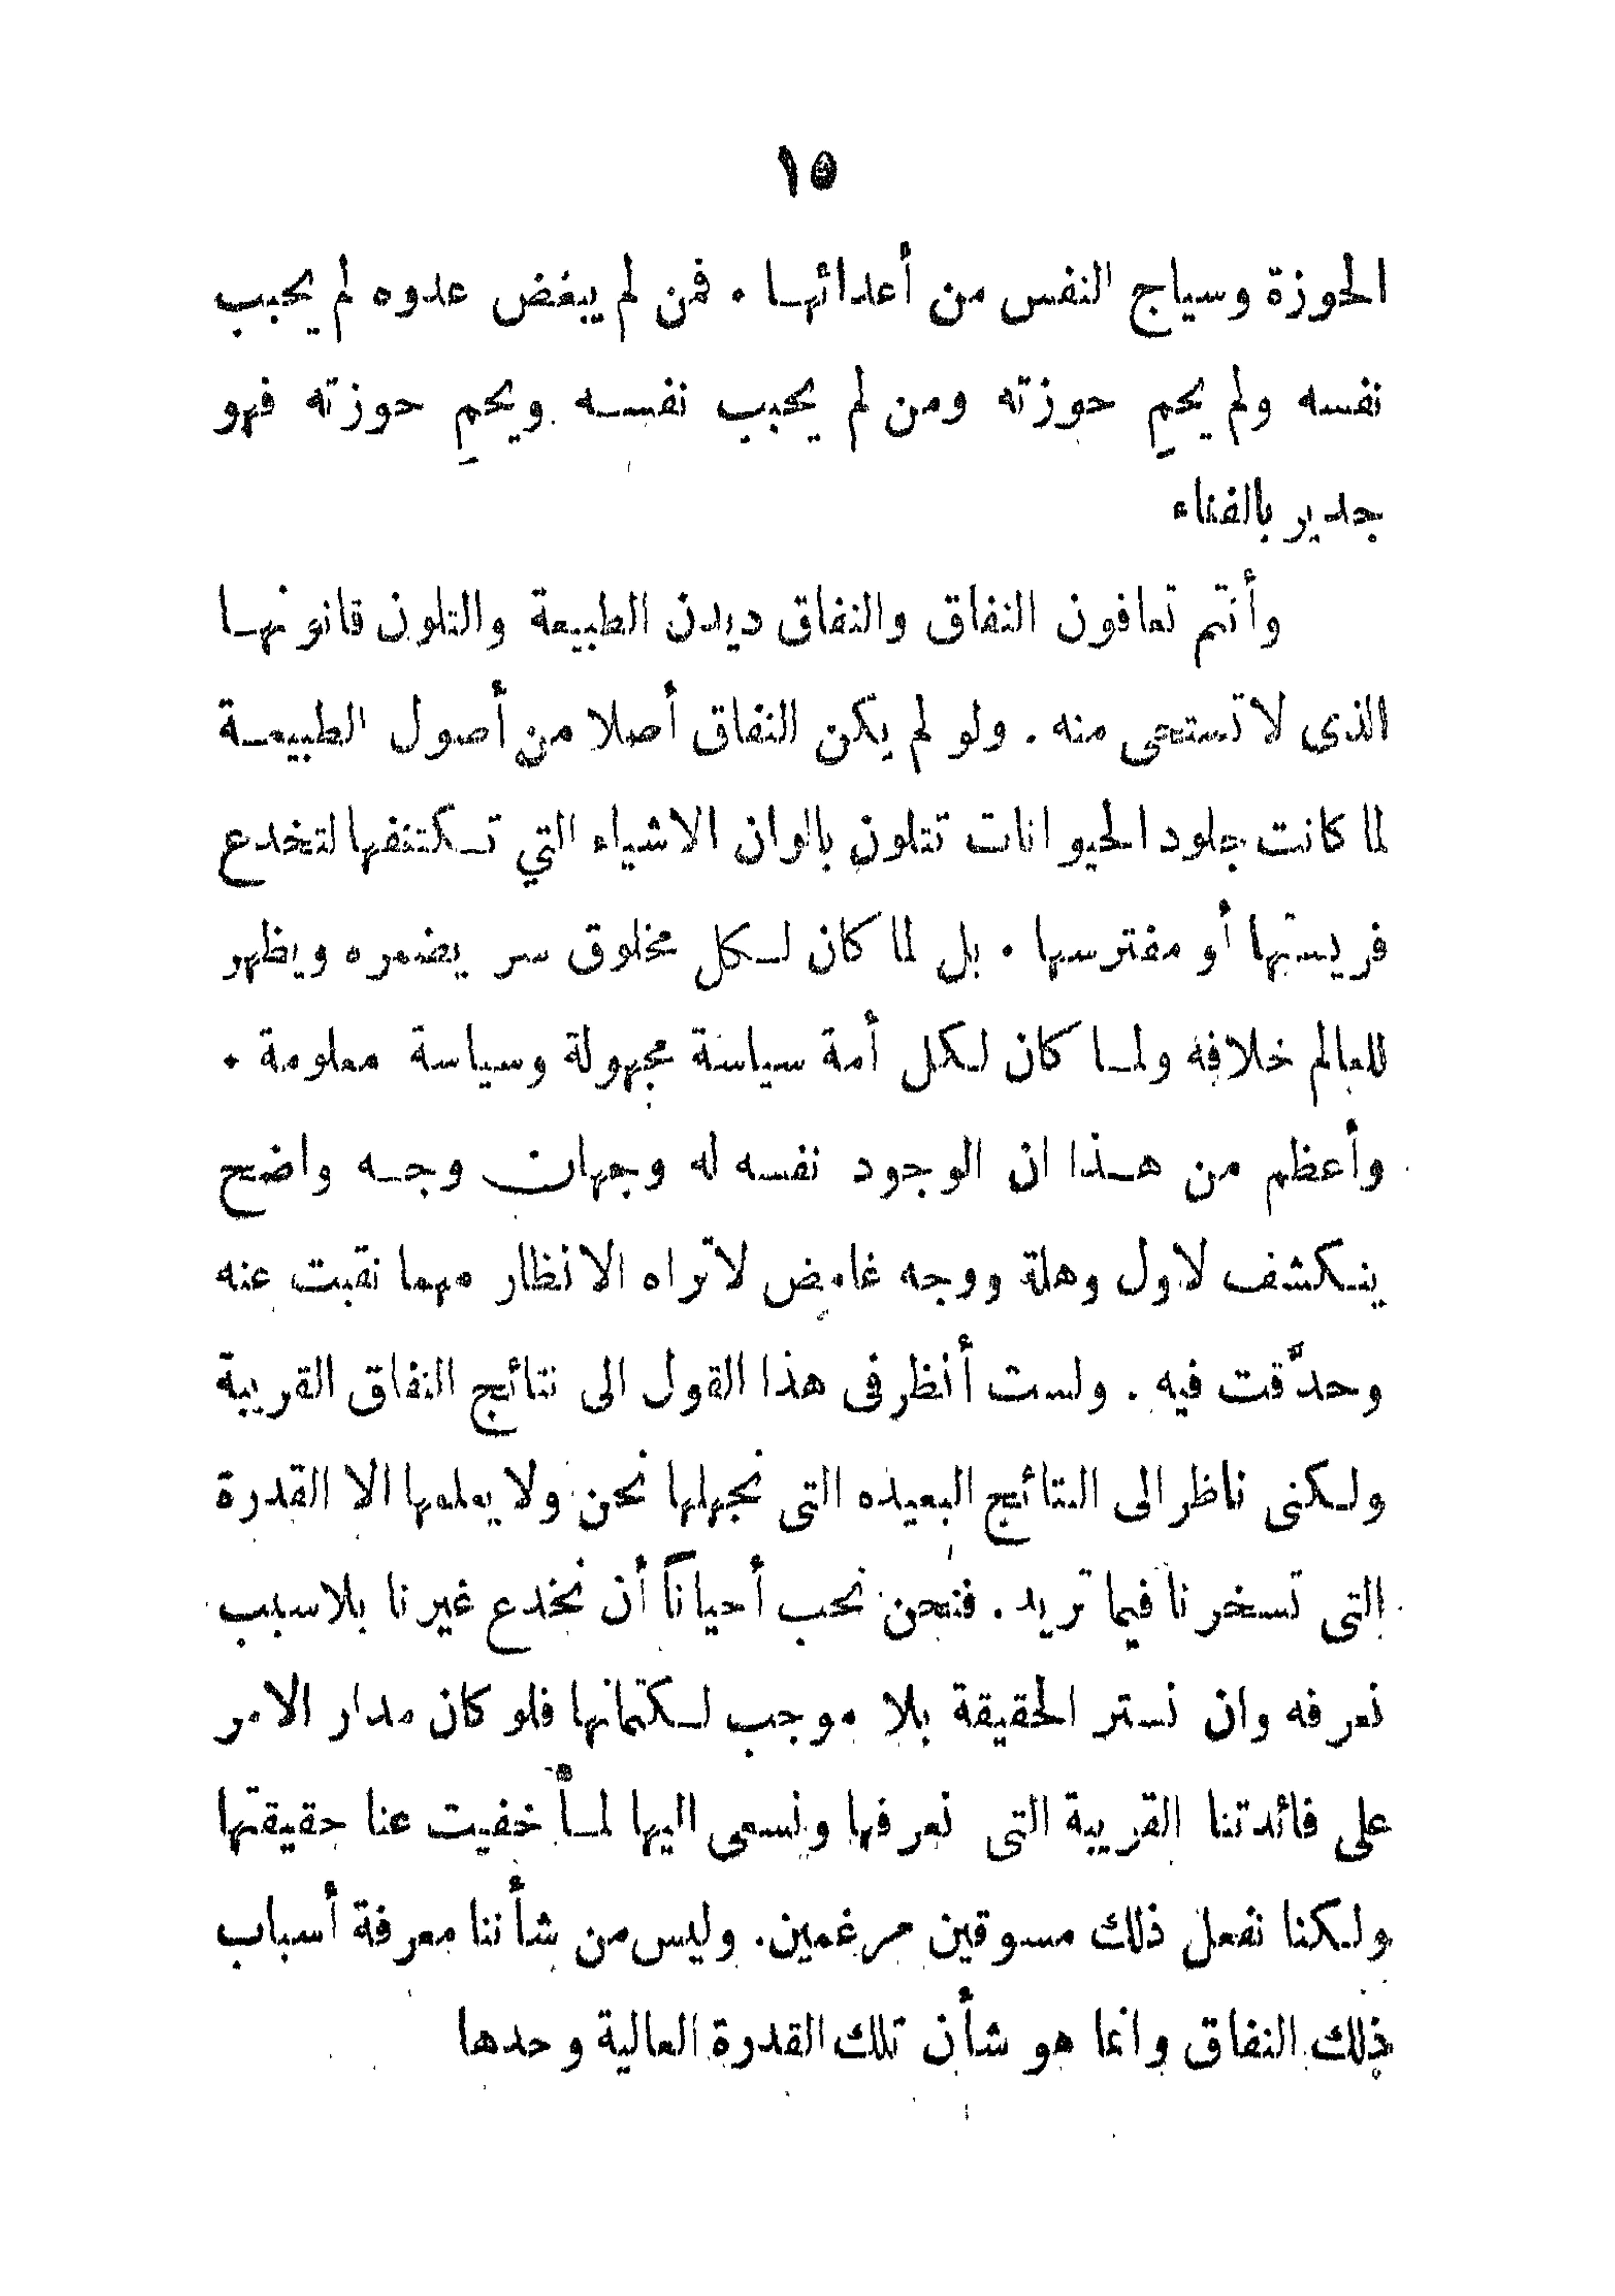 ١٥
الحوزة وسياج النفس من أعدائها . فمن لم يبغض عدوه لم يحبب
نفسه ولم يحمِ حوزته ومن لم يحبب نفسه ويحمِ حوزته فهو
جدير بالفناء
وأنتم تعافون النفاق والنفاق ديدن الطبيعة والتلون قانونها
الذى لا تستحى منه . ولو لم يكن النفاق أصلا من أصول الطبيعة
لما كانت جلود الحيوانات تتلون بالوان الاشياء التي تكتنفها لتخدع
فريستها أو مفترسها . بل لما كان لكل مخلوق سر يضمره ويظهر
للعالم خلافه ولما كان لكل أمة سياسة مجهولة وسياسة معلومة .
وأعظم من هذا ان الوجود نفسه له وجهان وجه واضح
ينكشف لاول وهلة ووجه غامض لا تراه الانظار مهما نقبت عنه
وحدَّقت فيه . ولست أنظر فى هذا القول الى نتائج النفاق القريبة
ولكنى ناظر الى النتائج البعيده التى نجهلها نحن ولا يعلمها الا القدرة
التى تسخرنا فيما تريد . فنحن نحب أحياناً أن نخدع غيرنا بلا سبب
نعرفه وان نستر الحقيقة بلا موجب لكتمانها فلو كان مدار الامر
على فائدتنا القريبة التى نعرفها ونسعى اليها لما خفيت عنا حقيقتها
ولكنا نفعل ذلك مسوقين مرغمين . وليس من شأننا معرفة أسباب
ذلك النفاق وانما هو شأن تلك القدرة العالية وحدها